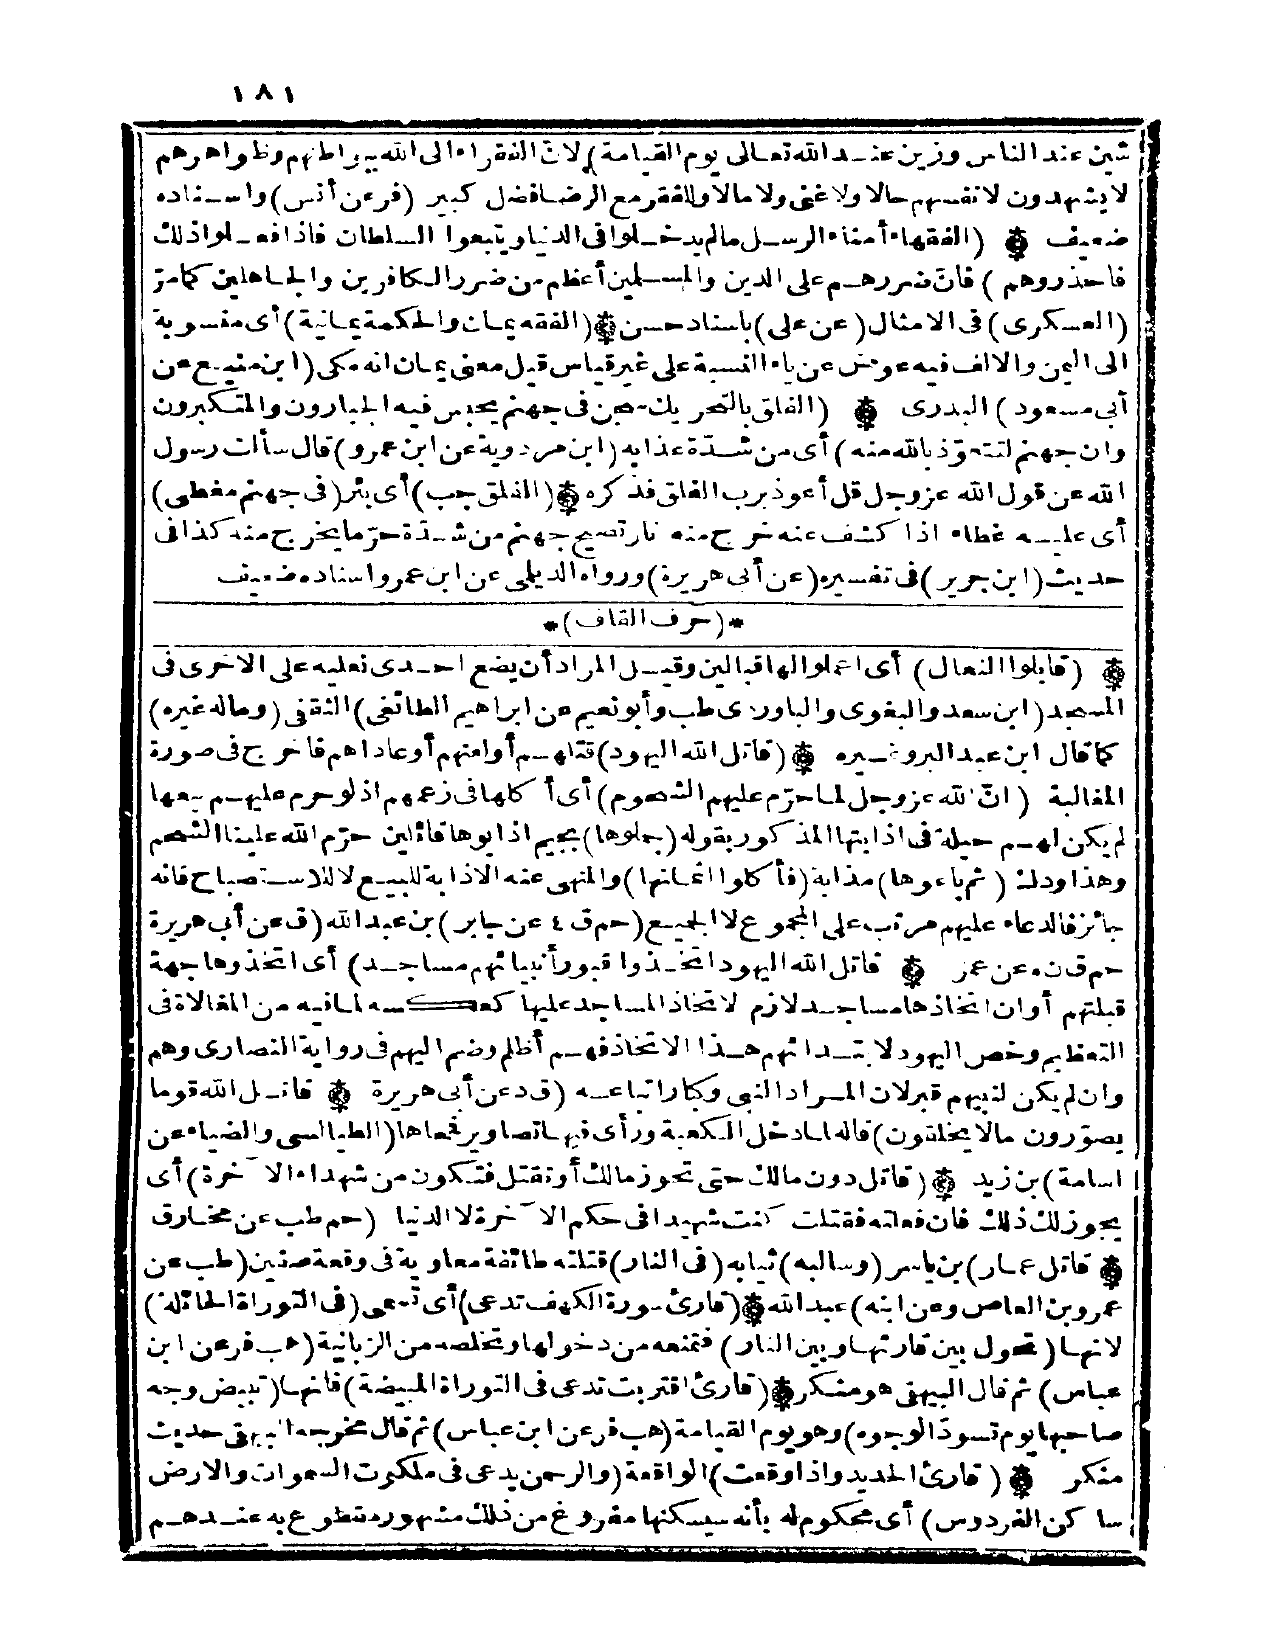 ١٨١
شين عند الناس وزين عند الله تعالى يوم القيامة) لان الفقراء الى الله ببواطنهم وظواهرهم
لا يشهدون لانفسهم حالا ولا غنى ولا مالا وللفقر مع الرضا فضل كبير (فر عن أنس) واسناده
ضعيف ۞ (الفقهاء أمناء الرسل ما لم يدخلوا فى الدنيا ويتبعوا السلطان فاذا فعلوا ذلك
فاحذروهم) فان ضررهم على الدين والمسلمين أعظم من ضرر الكافرين والجاهلين كما مرّ
(العسكرى) فى الامثال (عن على) باسناد حسن ۞ (الفقه يمان والحكمة يمانية) أى منسوبة
الى اليمن والالف فيه عوض عن ياء النسبة على غير قياس قيل معنى يمان انه مكى (ابن منيع عن
أبى مسعود) البدرى ۞ (الفلق بالتحريك سجن فى جهنم يحبس فيه الجبارون والمتكبرون
وان جهنم لتتعوّذ بالله منه) أى من شدّة عذابه (ابن مردوية عن ابن عمرو) قال سألت رسول
الله عن قول الله عز وجل قل أعوذ برب الفلق فذكره ۞ (الفلق جب) أى بئر (فى جهنم مغطى)
أى عليه غطاء اذا كشف عنه خرج منه نار تصيح جهنم من شدة حرّ ما يخرج منه كذا فى
حديث (ابن جرير) فى تفسيره (عن أبى هريرة) ورواه الديلى عن ابن عمرو اسناده ضعيف
*(حرف القاف)*
۞ (قابلوا النعال) أى اعملوا لها قبالين وقيل المراد أن يضع احدى نعليه على الاخرى فى
المسجد (ابن سعد والبغوى والباوردى طب وأبو نعيم عن ابراهيم الطائفى) الثقفى (وماله غيره)
كما قال ابن عبد البر وغيره ۞ (قاتل الله اليهود) قتلهم أو لعنهم أو عاداهم فاخرج فى صورة
المغالبة (انّ الله عز وجل لما حرّم عليهم الشحوم) أى أكلها فى زعمهم اذ لو حرم عليهم بيعها
لم يكن لهم حيلة فى اذابتها المذكور بقوله (جملوها) بجيم اذابوها قائلين حرّم الله علينا الشحم
وهذا ودك (ثم باعوها) مذابة (فأكلوا اثمانها) والمنهى عنه الاذابة للبيع لا للاستصباح فانه
جائز فالدعاء عليهم مرتب على المجموع لا الجميع (حم ق ٤ عن جابر) بن عبد الله (ق عن أبى هريرة
حم ق ن ه عن عمر ۞ قاتل الله اليهود اتخذوا قبور أنبيائهم مساجد) أى اتخذوها جهة
قبلتهم أو ان اتخاذها مساجد لازم لاتخاذ المساجد عليها كعكسه لما فيه من المغالاة فى
التعظيم وخص اليهود لابتدائهم هذا الاتخاذ فهم أظلم وضم اليهم فى رواية النصارى وهم
وان لم يكن لنبيهم قبر لان المراد النبى وكبار اتباعه (ق د عن أبى هريرة ۞ قاتل الله قوما
يصوّرون مالا يخلقون) قاله لما دخل الكعبة ورأى فيها تصاوير فمحاها (الطيالسى والضياء عن
اسامة) بن زيد ۞ (قاتل دون مالك حتى تحوز مالك أو تقتل فتكون من شهداء الآخرة) أى
يجوز لك ذلك فان فعلته فقتلت كنت شهيدا فى حكم الآخرة لا الدنيا (حم طب عن مخارق
۞ قاتل عمار) بن ياسر (وسالبه) ثيابه (فى النار) قتلته طائفة معاوية فى وقعة صفين (طب عن
عمرو بن العاص وعن ابنه) عبد الله ۞ (قارئ سورة الكهف تدعى) أى تسمى (فى التوراة الحائلة)
لانها (تحول بين قارئها وبين النار) فتمنعه من دخولها وتخلصه من الزبانية (هب فر عن ابن
عباس) ثم قال البيهقى هو منكر ۞ (قارئ اقتربت تدعى فى التوراة المبيضة) فانها (تبيض وجه
صاحبها يوم تسودّ الوجوه) وهو يوم القيامة (هب فر عن ابن عباس) ثم قال مخرجه البيهقى حديث
منكر ۞ (قارئ الحديد واذا وقعت) الواقعة (والرحمن يدعى فى ملكوت السموات والارض
ساكن الفردوس) أى محكوم له بأنه سيسكنها مفروغ من ذلك مشهور مقطوع به عندهم